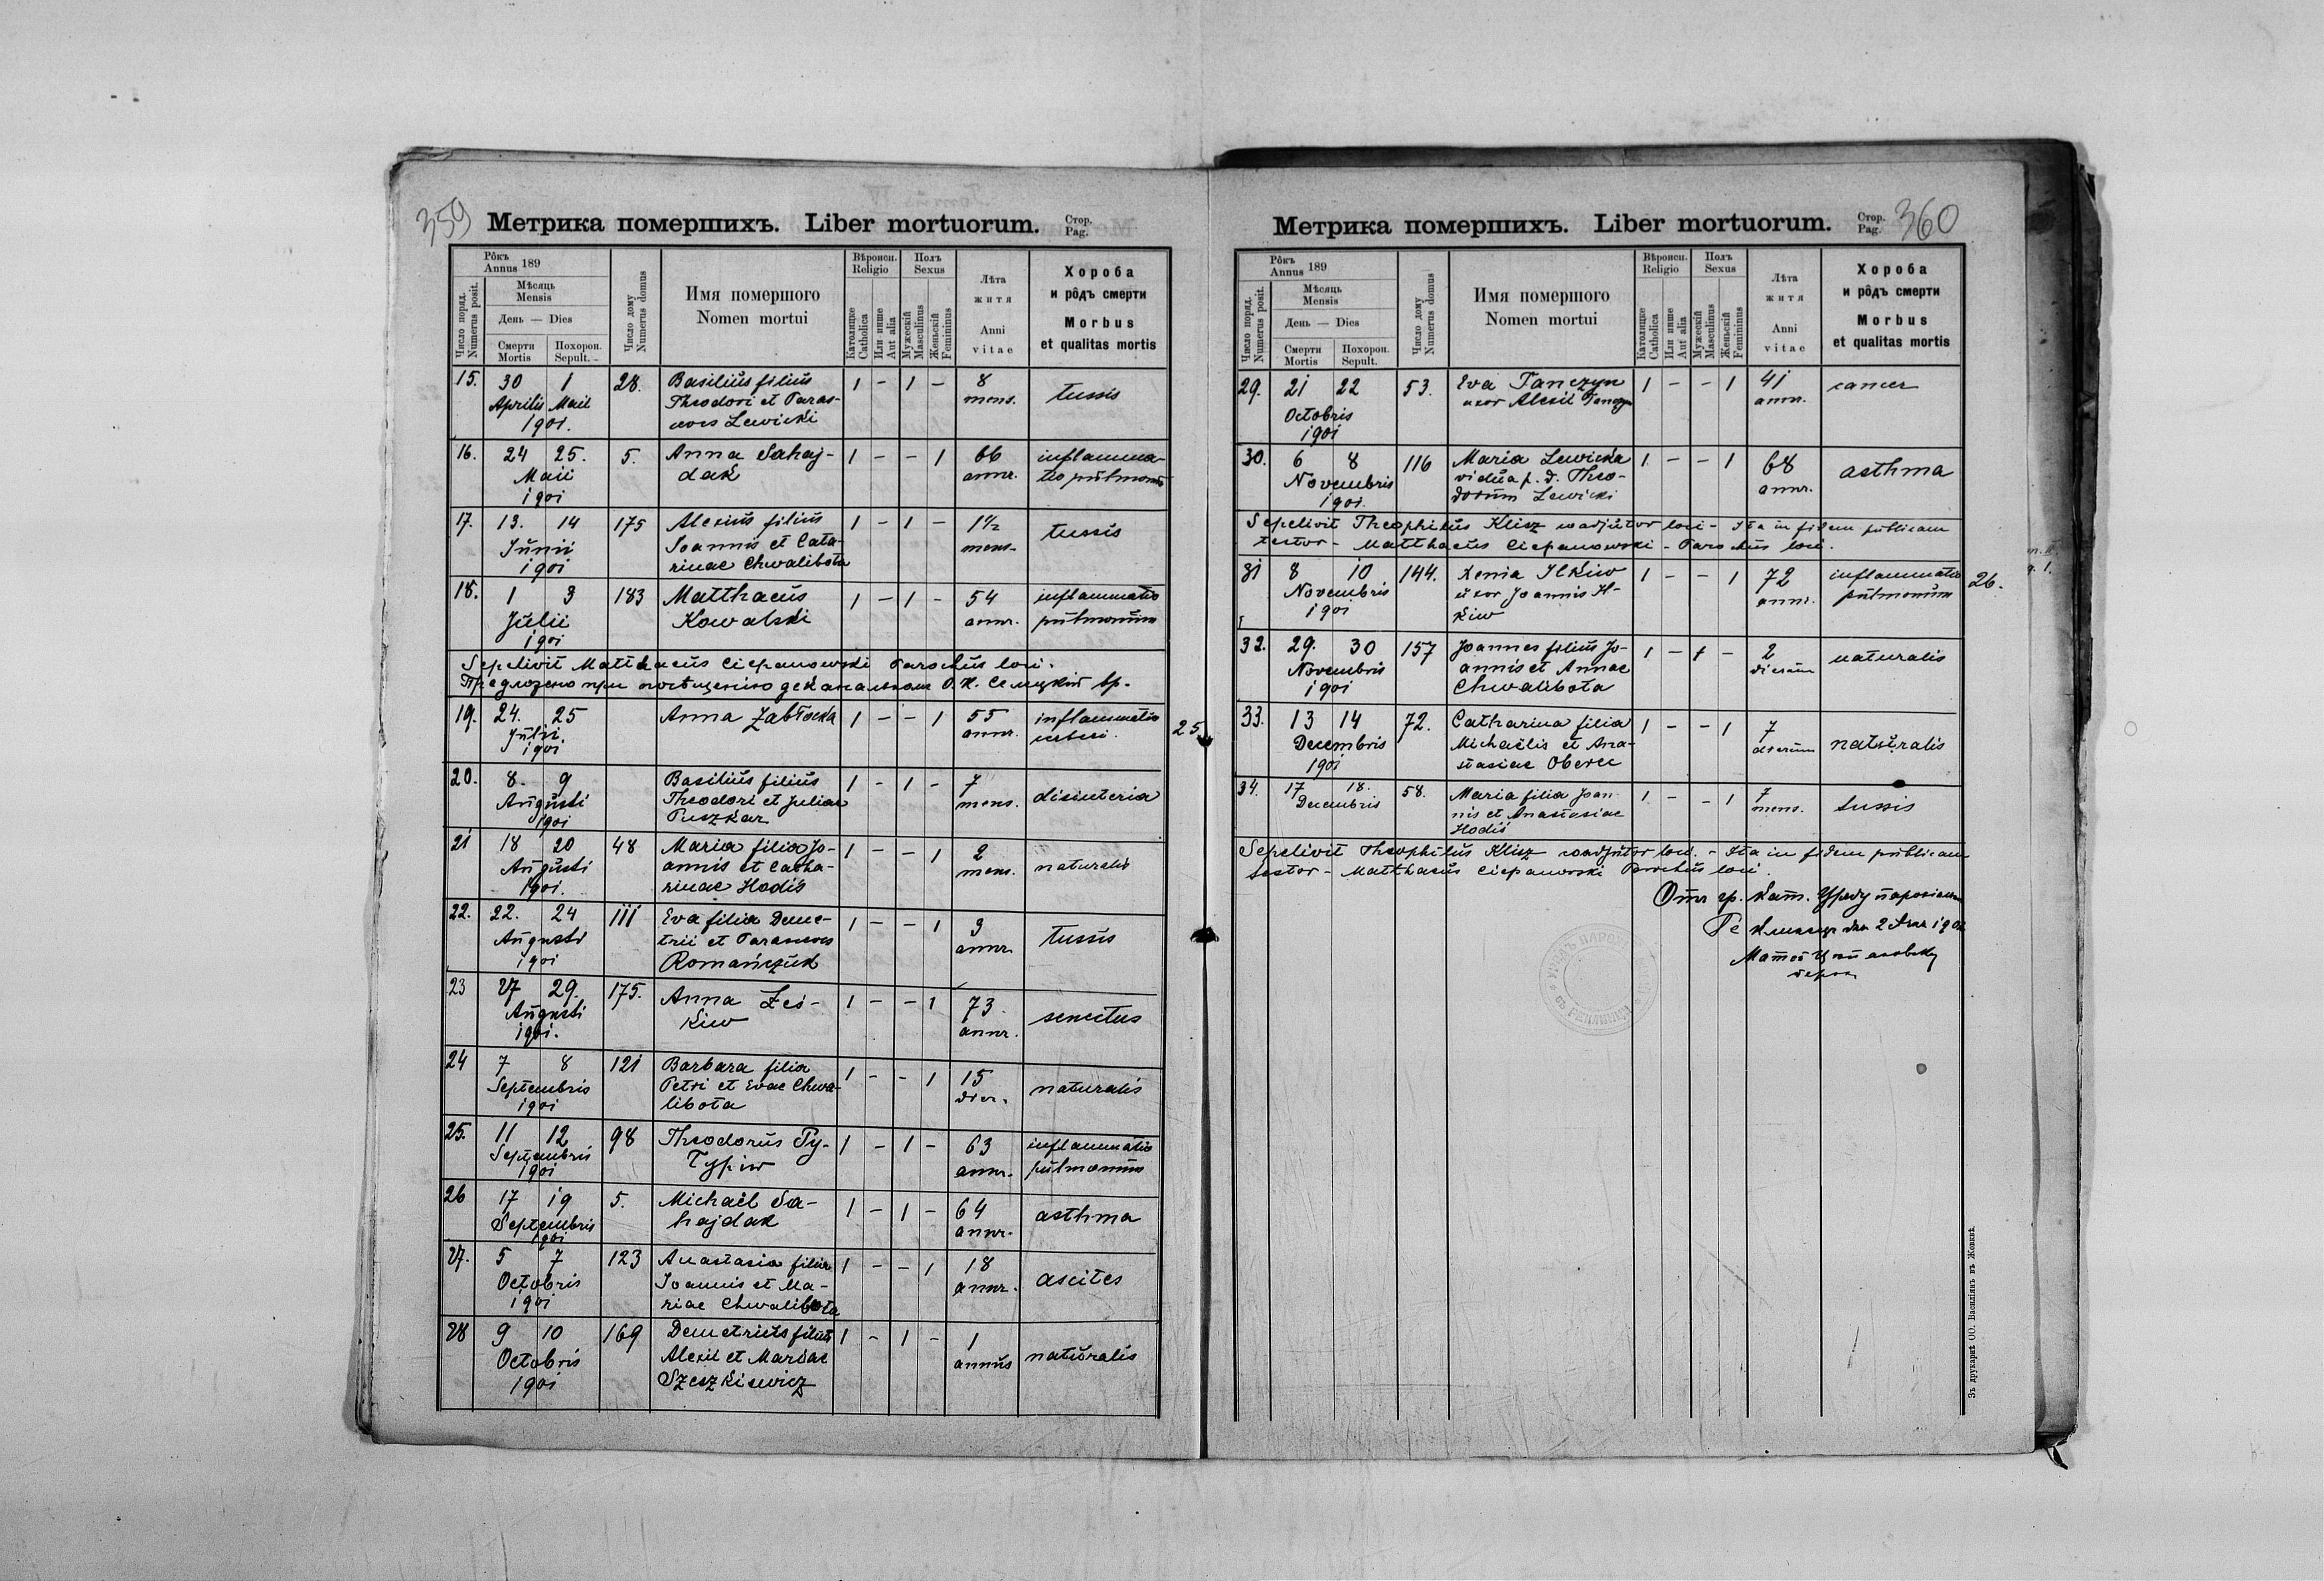 359
Метрика помершихъ. Liber mortuorum. Стор. Pag.
Рôкъ Annus 189
Число поряд. Numerus posit.
Мѣсяць Mensis
День — Dies
Смерти Mortis
Похорон. Sepult.
Число дому Numerus domus
Имя помершого Nomen mortui
Вѣроисп. Religio
Католицке Catholica
Или инше Aut alia
Полъ Sexus
Мужескій Masculinus
Женьскій Femininus
Лѣта житя Anni vitae
Хороба и рôдъ смерти Morbus et qualitas mortis
15. 30 1 28. Basilius filius 1 – 1 – 8 tussis
Aprilis Maii Theodori et Paras- mens.
1901. Lewicki
16. 24 25. 5. Anna Sahaj- 1 – – 1 66 inflamma-
Maii dak annr. tio pulmonis
1901
17. 13. 14 175 Alexius filius 1 – 1 – 1½ tussis
Junii Joannis et Catha- mens.
1901 rinae Chwalibota
18. 1 3 183 Matthaeus 1 – 1 – 54 inflammatio
Julii Kowalski annr. pulmonum
1901
Sepelivit Matthaeus Ciepanowski Parochus loci.
Предложено при посѣщенію деканальном
19. 24. 25 Anna Zabłocka 1 – – 1 55 inflammatio
Julii annr.
1901
25
20. 8. 9 Basilius filius 1 – 1 – 7 disinteria
Augusti Theodori et Juliae mens.
1901 Puszkar
21 18 20 48 Maria filia Jo- 1 – – 1 2 naturalis
Augusti annis et Catha- mens.
1901. rinae Hodis
22. 22. 24 111 Eva filia Deme- 1 – – 1 3 tussis
Augusti trii et Parascevis annr.
1901 Romańczuk
23 27 29. 175. Anna Łes- 1 – – 1 73 senectus
Augusti kiw annr.
1901.
24 7 8 121 Barbara filia 1 – – 1 15 naturalis
Septembris Petri et Evae Chwa- dier.
1901 libota
25. 11 12 98 Theodorus Ty- 1 – 1 – 63 inflammatio
Septembris Typiw annr. pulmonum
1901
26 17 19 5. Michaël Sa- 1 – 1 – 64 asthma
Septembris hajdak annr.
1901
27. 5 7 123 Anastasia filia 1 – – 1 18 ascites
Octobris Joannis et Ma- annr.
1901 riae Chwalibota
28 9 10 169 Demetrius filius 1 – 1 – 1 naturalis
Octobris Alexii et Mariae annus
1901 Szeszkiewicz
Метрика помершихъ. Liber mortuorum. Стор. Pag. 360
Рôкъ Annus 189
Число поряд. Numerus posit.
Мѣсяць Mensis
День — Dies
Смерти Mortis
Похорон. Sepult.
Число дому Numerus domus
Имя помершого Nomen mortui
Вѣроисп. Religio
Католицке Catholica
Или инше Aut alia
Полъ Sexus
Мужескій Masculinus
Женьскій Femininus
Лѣта житя Anni vitae
Хороба и рôдъ смерти Morbus et qualitas mortis
29. 21 22 53. Eva Tanczyn 1 – – 1 41 cancer
Octobris uxor Alexii Tanczyn annr.
1901
30. 6 8 116 Maria Lewicka 1 – – 1 68 asthma
Novembris vidua p. d. Theo- annr.
1901. dorum Lewicki
Sepelivit Theophilus Klisz coadjutor loci – Ita in fidem publicam
testor – Matthaeus Ciepanowski – Parochus loci.
31 8 10 144. Xenia Ilkiw 1 – – 1 72 inflammatio
Novembris uxor Joannis Il- annr. pulmonum
1901 kiw
26.
32. 29. 30 157 Joannes filius Jo- 1 – 1 – 2 naturalis
Novembris annis et Annae dierum
1901 Chwalibota
33. 13 14 72. Catharina filia 1 – – 1 7 naturalis
Decembris Michaëlis et Ana- dierum
1901 stasiae Oberec
34. 17 18. 58. Maria filia Joan- 1 – – 1 7 tussis
Decembris nis et Anastasiae mens.
Hodis
Sepelivit Theophilus Klisz coadjutor loci. – Ita in fidem publicam
testor – Matthaeus Ciepanowski Parochus loci.
Отъ гр. кат. Уряду
дня 2
Зъ друкарнѣ ОО. Василіянъ въ Жовквѣ.